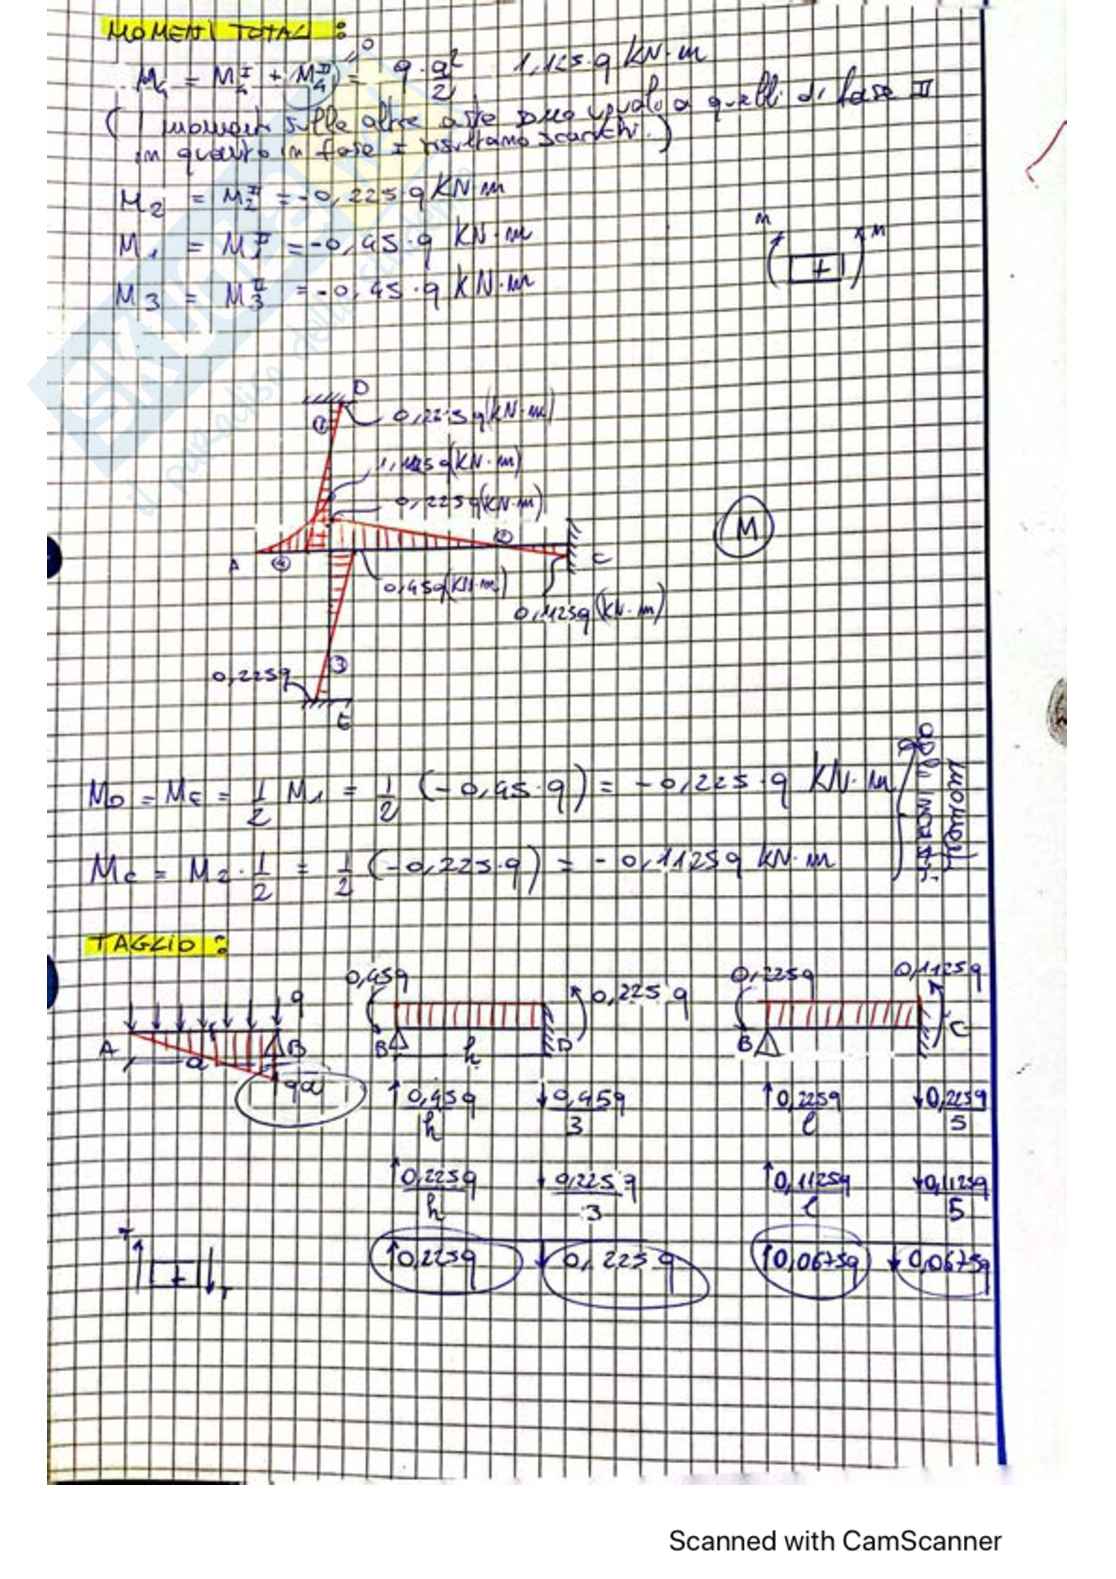 MOMENTI TOTALI :
M4 = M4^I + M4^II = q·a²/2 1,125·q KN·m
(I momenti sulle altre aste sono uguali a quelli di fase II
in quanto in fase I risultano scarichi.)
M2 = M2^II = -0,225·q KN·m
M1 = M1^II = -0,45·q KN·m
M3 = M3^II = -0,45·q KN·m
M + M
D
① 0,225q(KN·m)
1,125q(KN·m)
0,225q(KN·m)
M
A ④ ② C
0,45q(KN·m)
0,1125q(KN·m)
③
0,225q
E
MD = ME = 1/2 M1 = 1/2 (-0,45·q) = -0,225·q KN·m
MC = M2 · 1/2 = 1/2 (-0,225·q) = -0,1125q KN·m
momenti
agli incastri
TAGLIO :
q 0,45q 0,225q 0,225q 0,1125q
A a B B h D B C
qa
↑0,45q/h ↓0,45q/3 ↑0,225q/l ↓0,225q/5
↑0,225q/h ↓0,225q/3 ↑0,1125q/l ↓0,1125q/5
T + T
↑0,225q ↓0,225q ↑0,0675q ↓0,0675q
SKUOLA
il paradiso dello studente
Scanned with CamScanner